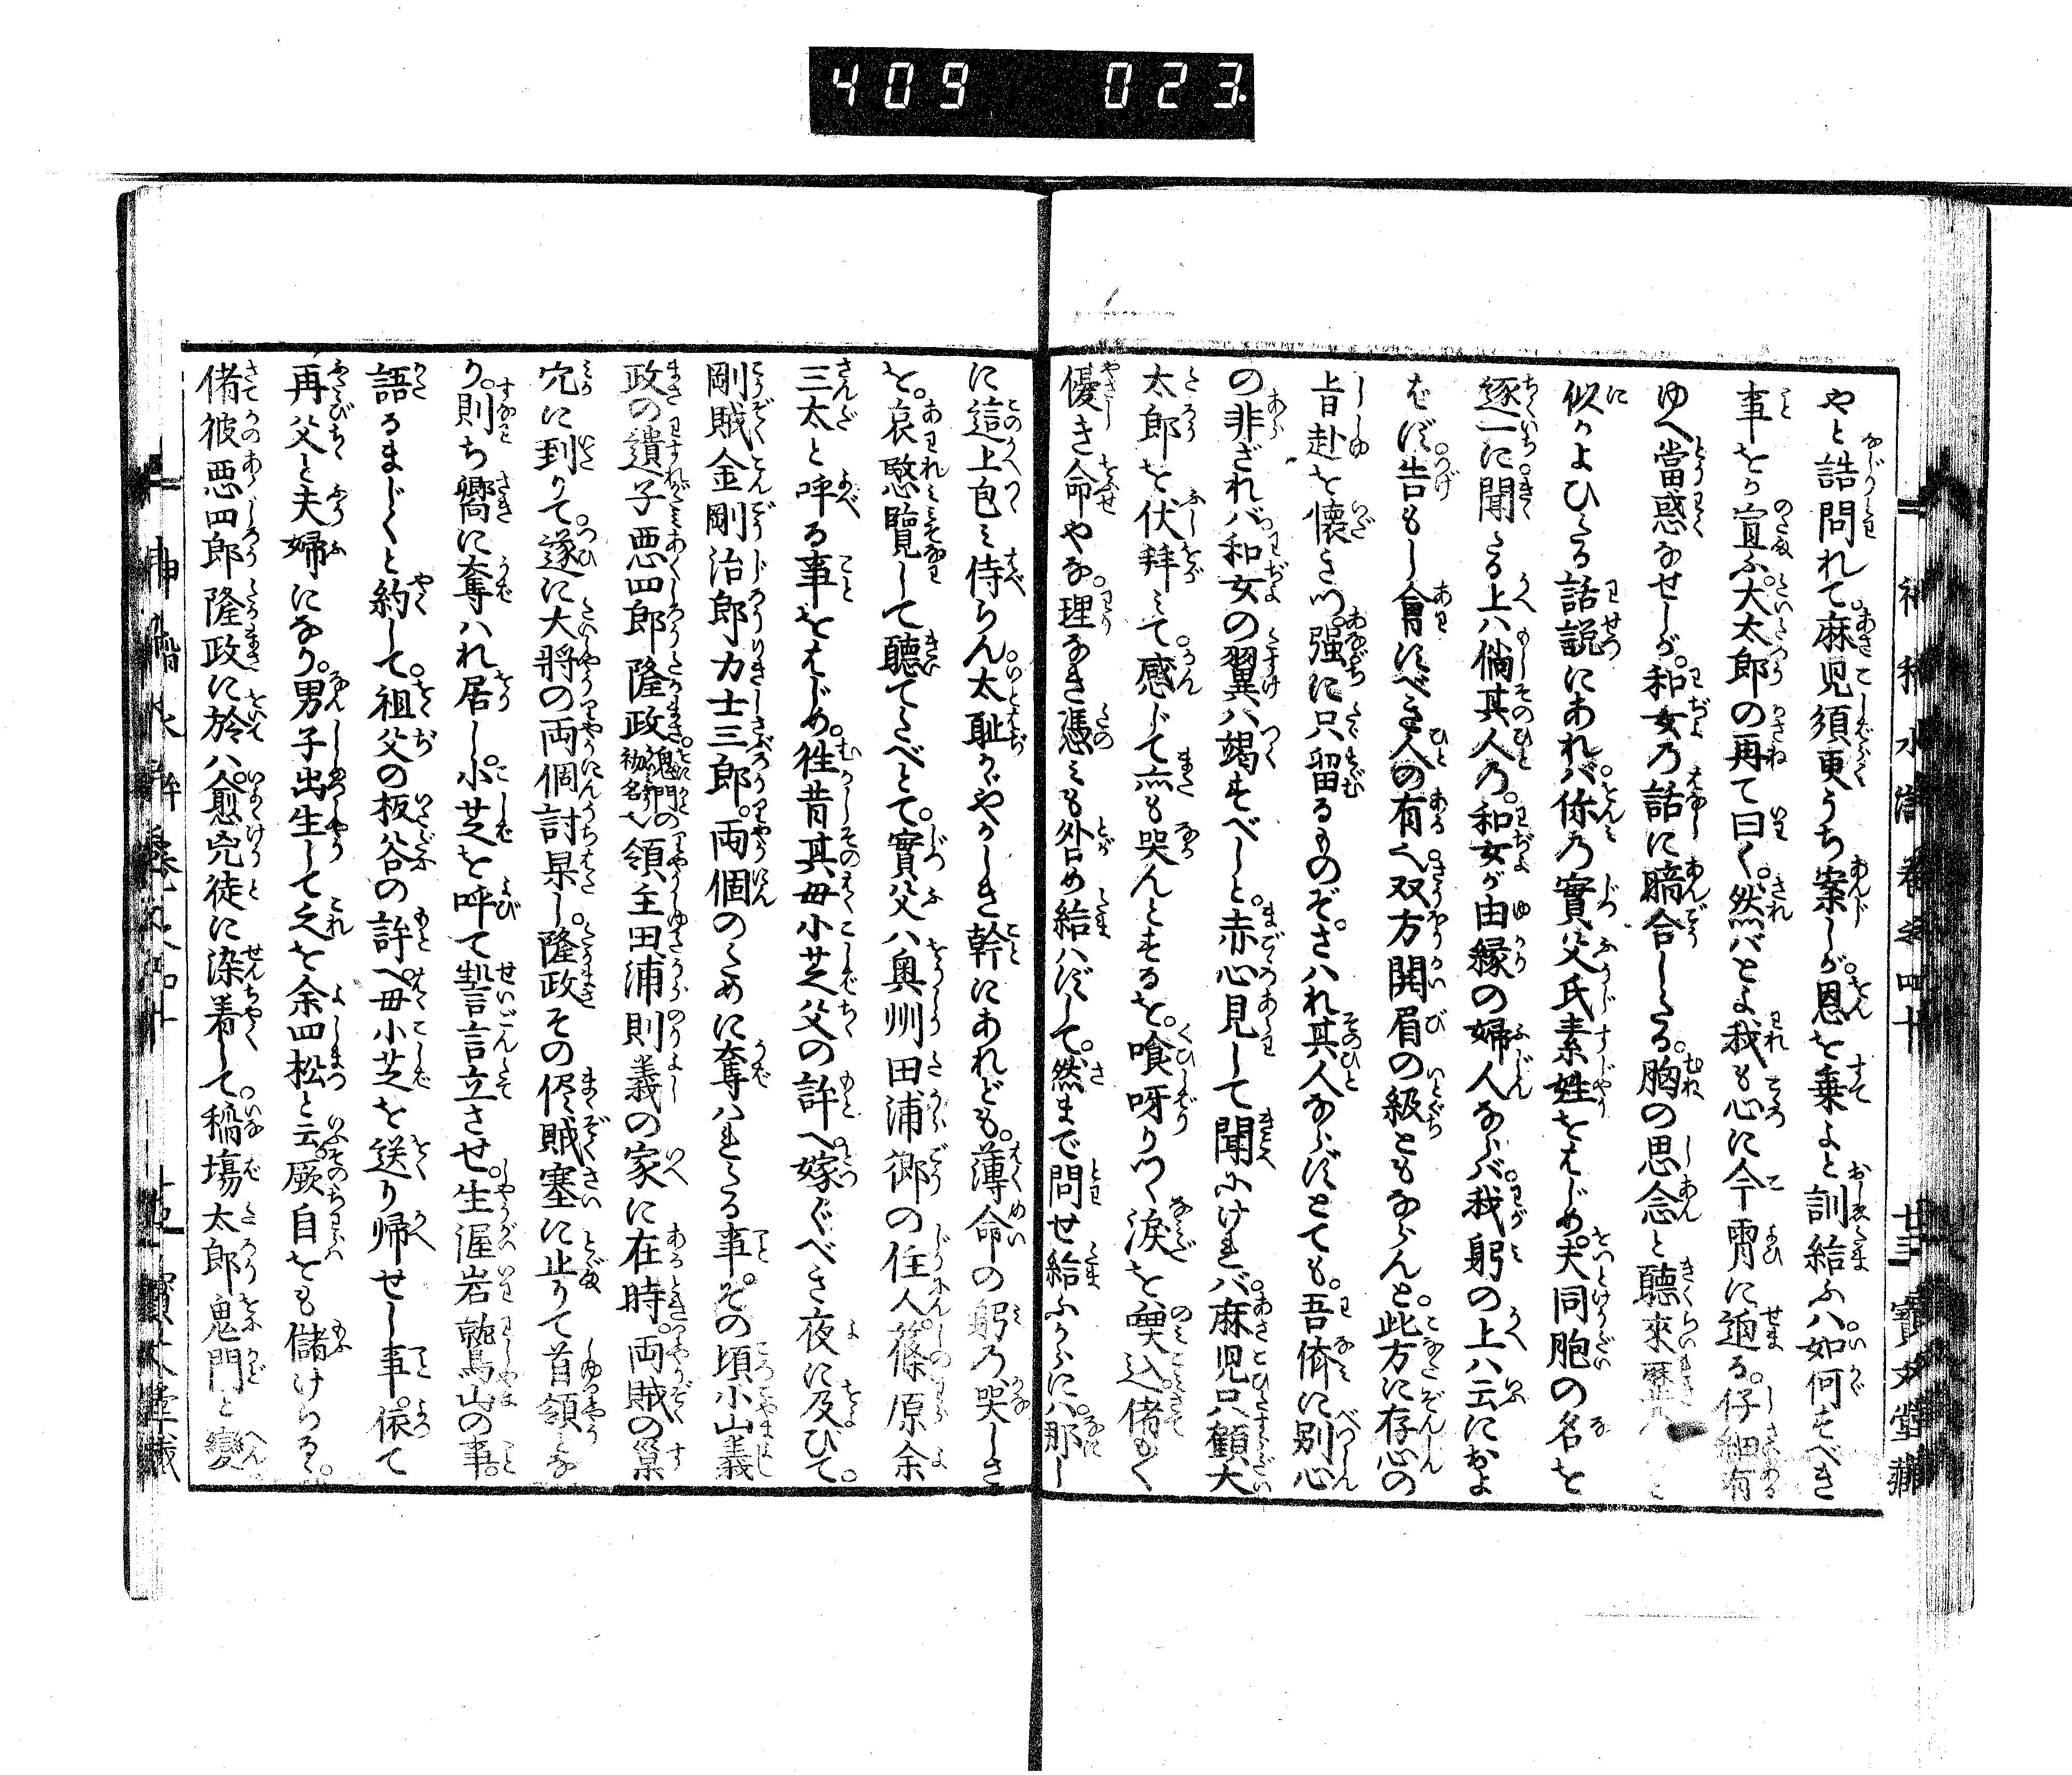 409 023
神稲水滸巻之四十 廿三 寶文堂藏
やと詰問れて。麻児須臾うち案しが。恩を棄よと訓給ふハ如何すべき
事をら宣ふ。大太郎の再て曰く。然バとよ我も心に今霄に逎る。仔細有
ゆへ當惑なせしが。和女乃話に暗合しる。胸の思念と聴來歴
似かよひたる話説にあれバ。你乃實父氏素姓をはじめ。夫同胞の名を
逐一に聞たる上ハ倘其人乃。和女が由縁の婦人ならバ。我躬の上ハ云におよ
ばず。告もし會すべき人の有。双方開眉の級ともならんと。此方に存心の
旨趣を懐きつ。强に只留るものぞ。さハれ其人ならずとても。吾儕に別心
の非ざれバ。和女の翼ハ竭すべしと。赤心見して聞ゆけれバ。麻児只顧大
太郎を伏拜みて。感じて亦も哭んとするを。喰呀りつゝ涙を奥込。偖もく
優き命やな。理なき憑みも外め給ハずして。然まで問せ給ふからに八。那し
に這上包ミ侍らん。太耻かゞやかしき幹にあれども。薄命の躬乃哭しさ
を。哀愍覧して聽てたべとて。實父ハ奥州田浦郷の住人。篠原余
三太と呼る事をはじめ。往昔其毋小芝父の許へ嫁ぐべき夜に及びて。
剛賊金剛治郎力士三郎。両個のために奪ハれたる事。その頃小山義
政の遺子悪四郎隆政。鬼門の初名也領主田浦則義の家に在時。両賊の巣
穴に到りて。遂に大將の両個討果し。隆政その侭賊塞に止りて首領とな
り。則ち嚮に奪ハれ居し。小芝を呼て誓言立させ。生涯岩鷲山の事。
語るまじくと約して。祖父の板谷の許へ。毋小芝を送り帰せし事。依て
再父と夫婦になり。男子出生して之を余四松と云。厥自をも儲けらる。
偖彼悪四郎隆政に於ハ。愈兇徒に染着して。稲塲太郎鬼門と變
神稲水滸巻之四十 廿三 寶文堂藏